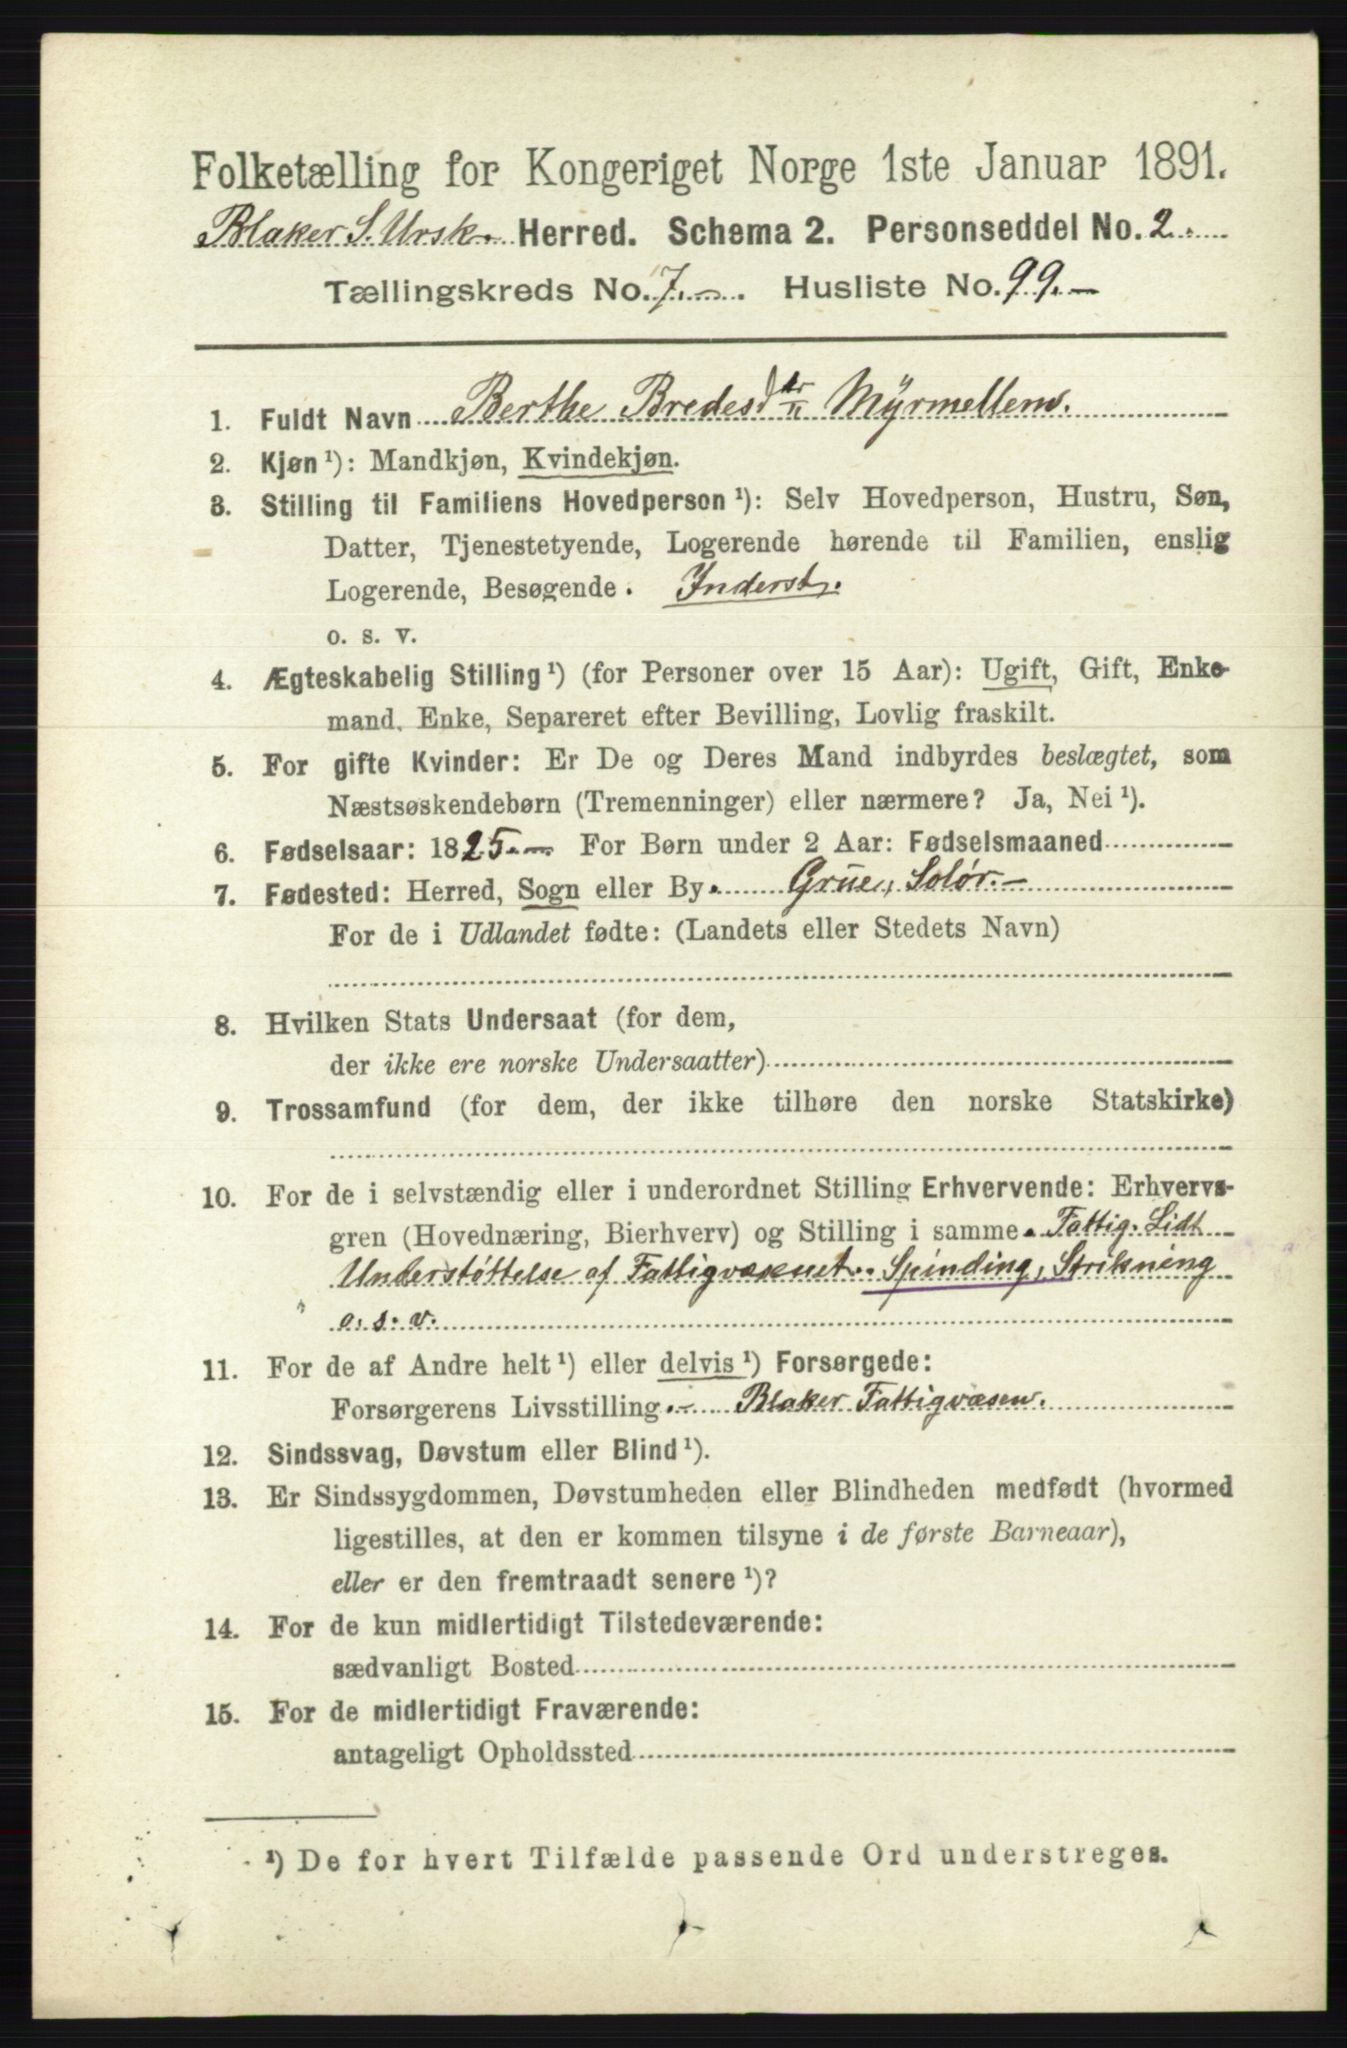 Folketælling for Kongeriget Norge 1ste Januar 1891.
Blaker S. Ursk. Herred. Schema 2. Personseddel No. 2.
Tællingskreds No. 7. Husliste No. 99.
1. Fuldt Navn Berthe Bredesdtr Myrmellem.
2. Kjøn ¹): Mandkjøn, Kvindekjøn.
3. Stilling til Familiens Hovedperson ¹): Selv Hovedperson, Hustru, Søn,
Datter, Tjenestetyende, Logerende hørende til Familien, enslig
Logerende, Besøgende. Inderst.
o. s. v.
4. Ægteskabelig Stilling ¹) (for Personer over 15 Aar): Ugift, Gift, Enke-
mand, Enke, Separeret efter Bevilling, Lovlig fraskilt.
5. For gifte Kvinder: Er De og Deres Mand indbyrdes beslægtet, som
Næstsøskendebørn (Tremenninger) eller nærmere? Ja, Nei ¹).
6. Fødselsaar: 1825. For Børn under 2 Aar: Fødselsmaaned
7. Fødested: Herred, Sogn eller By. Grue, Solør.
For de i Udlandet fødte: (Landets eller Stedets Navn)
8. Hvilken Stats Undersaat (for dem,
der ikke ere norske Undersaatter)
9. Trossamfund (for dem, der ikke tilhøre den norske Statskirke)
10. For de i selvstændig eller i underordnet Stilling Erhvervende: Erhvervs-
gren (Hovednæring, Bierhverv) og Stilling i samme. Fattig. Lidt
Understøttelse af Fattigvæsnet. Spinding, Strikning
o. s. v.
11. For de af Andre helt ¹) eller delvis ¹) Forsørgede:
Forsørgerens Livsstilling. Blaker Fattigvæsen.
12. Sindssvag, Døvstum eller Blind ¹).
13. Er Sindssygdommen, Døvstumheden eller Blindheden medfødt (hvormed
ligestilles, at den er kommen tilsyne i de første Barneaar),
eller er den fremtraadt senere ¹)?
14. For de kun midlertidigt Tilstedeværende:
sædvanligt Bosted
15. For de midlertidigt Fraværende:
antageligt Opholdssted
¹) De for hvert Tilfælde passende Ord understreges.